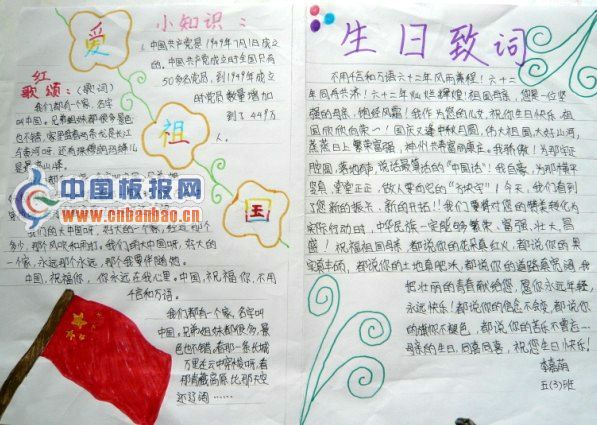 小知识：
1.中国共产党是1949年7月1日成立
的。中国共产党成立时全国只有
50多名党员，到1949年成立
时党员数量增加
到了449万
人。
爱
祖
国
红
歌颂：（歌词）
我们都有一个家，名字
叫中国。兄弟姐妹都很多景色
也不错，家里盘着两条龙是长江
与黄河呀，还有珠穆朗玛峰儿
是最高山坡
中国板报网
www.cnbanbao.cn
我们的大中国呀，好大的一个家，经过那个
多少，那个风吹和雨打。我们的大中国呀，好大的
一个家，永远那个永远，那个我要伴随她。
中国，祝福你，你永远在我心里。中国，祝福你，不用
千言和万语。
我们都有一个家，名字叫
中国。兄弟姐妹都很多，景
色也不错，看那一条长城
万里在云中穿梭呀，看
那青藏高原比那天空
还辽阔……
生日致词
不用千言和万语六十二年风雨兼程！六十二
年同舟共济！六十二年灿烂辉煌！祖国母亲，您是一位坚
强的母亲，饱经风霜！我作为您的儿女，祝你生日快乐，祖
国欣欣向荣！国庆又逢中秋月圆，伟大祖国大好山河，
蒸蒸日上繁荣富强，神州共
腔圆，落地有声，说话最算话的“中国话”！我自豪，为
堂堂正正，做人要向它的“方块字”！今天，我们看到
了您新的振兴，新的开拓！我们要将对您的赞美转化为
实际行动时，中华民族一定能够繁荣、富强、壮大、昌
盛！祝福祖国母亲，都说你的花朵真红火，都说你的果
实真丰硕，都说你的土地真肥沃，都说你的道路真宽阔，我
把壮丽的青春献给您，愿你永远年轻，
永远快乐！都说你的信念不会变，都说你
的旗帜不褪色，都说你的音乐不
母亲的生日，同喜同喜，祝您生日快乐！
李嘉萌
五（3）班